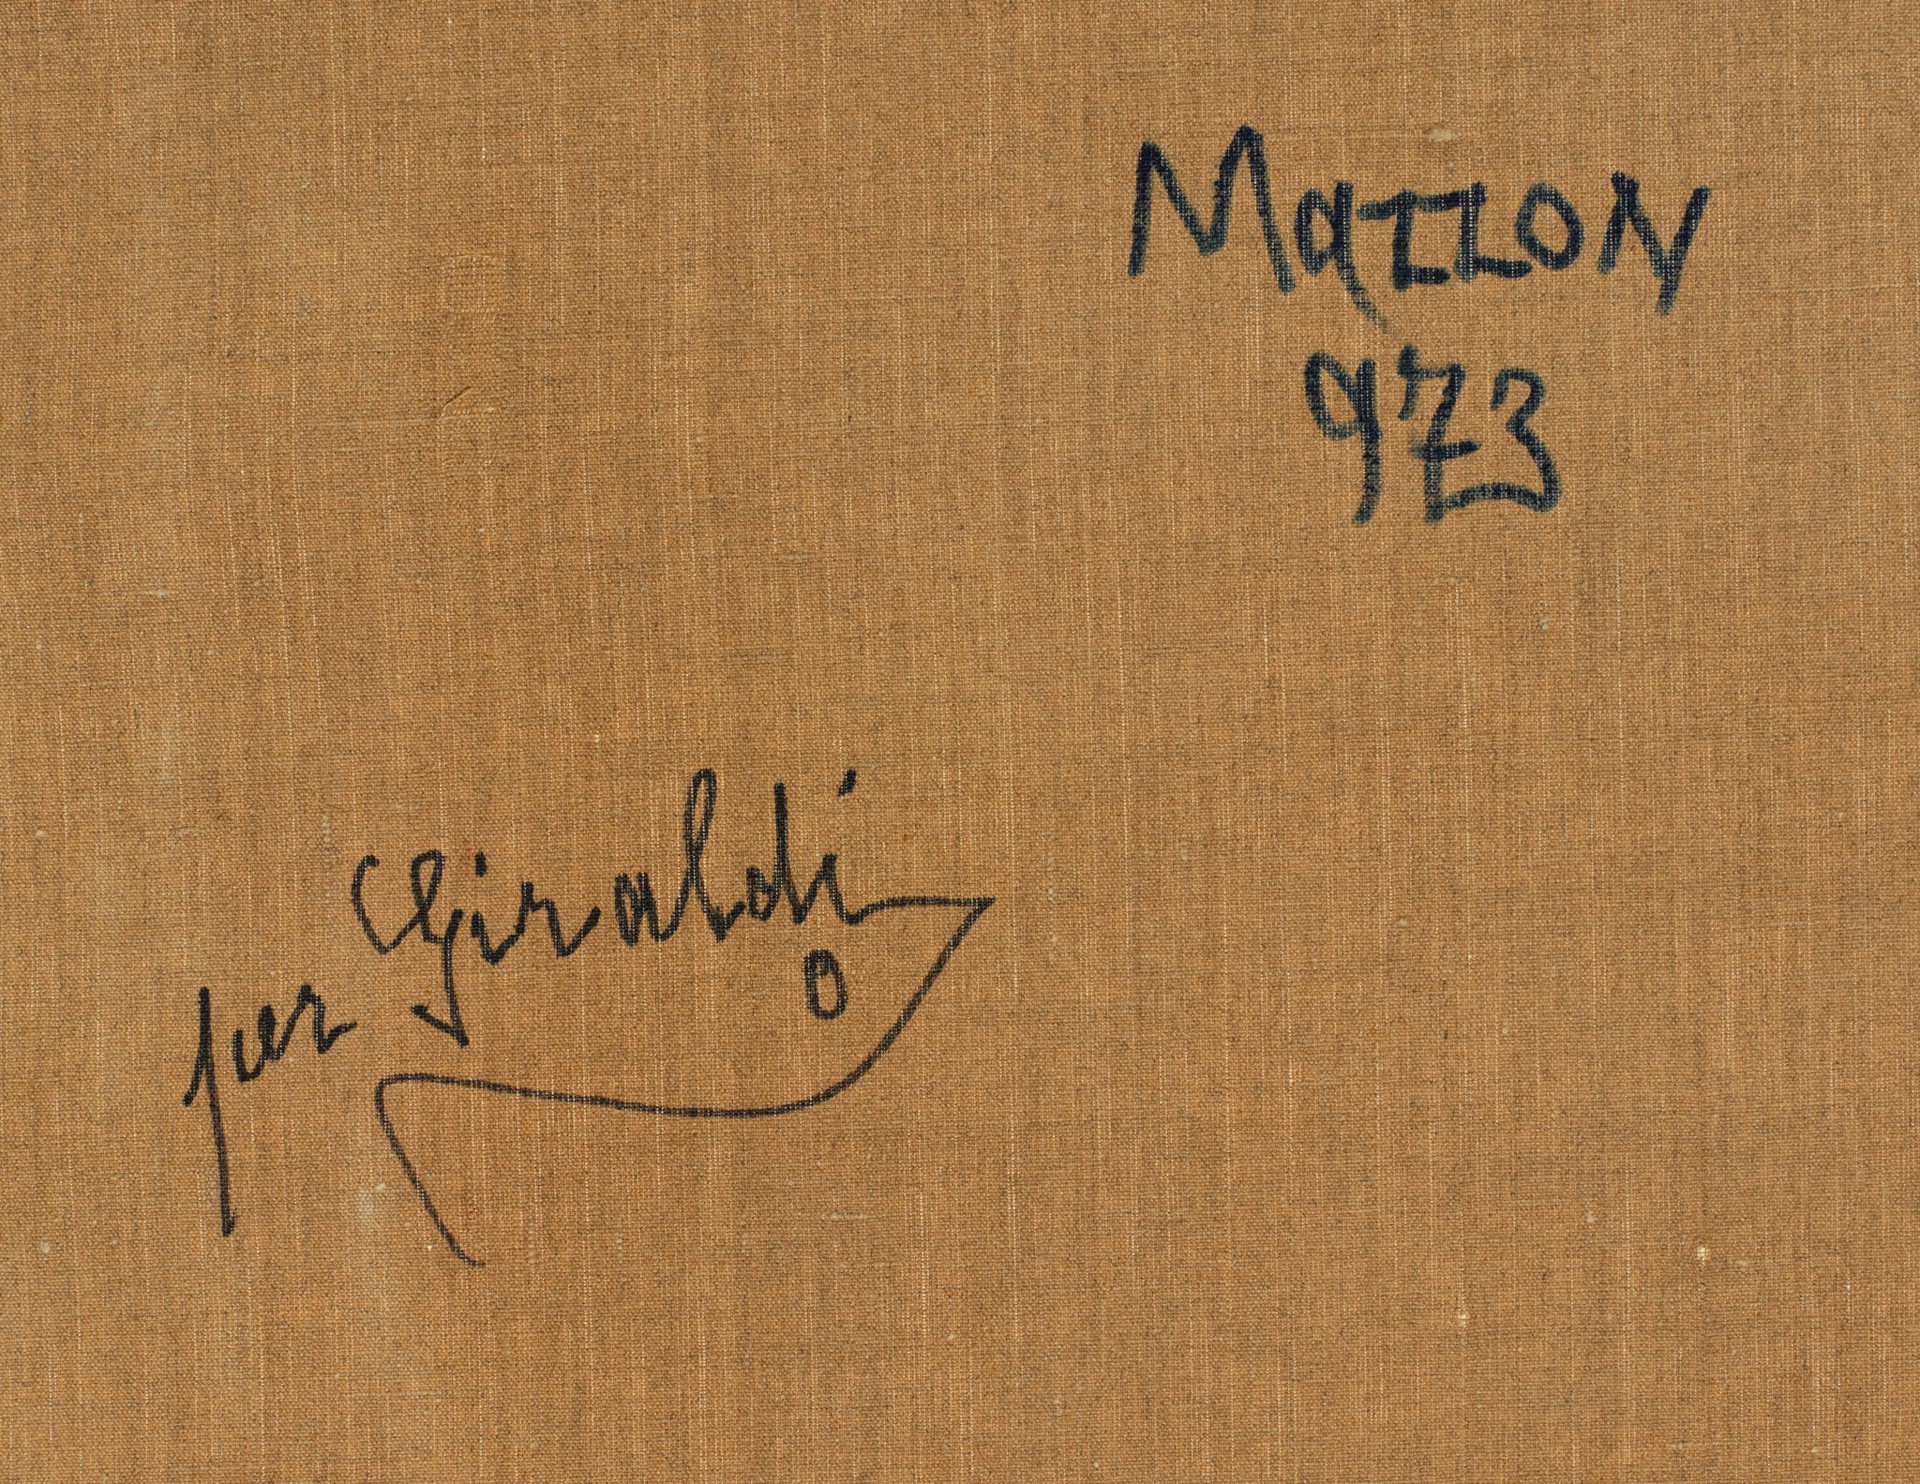 Mazzon
973
per Giraldi